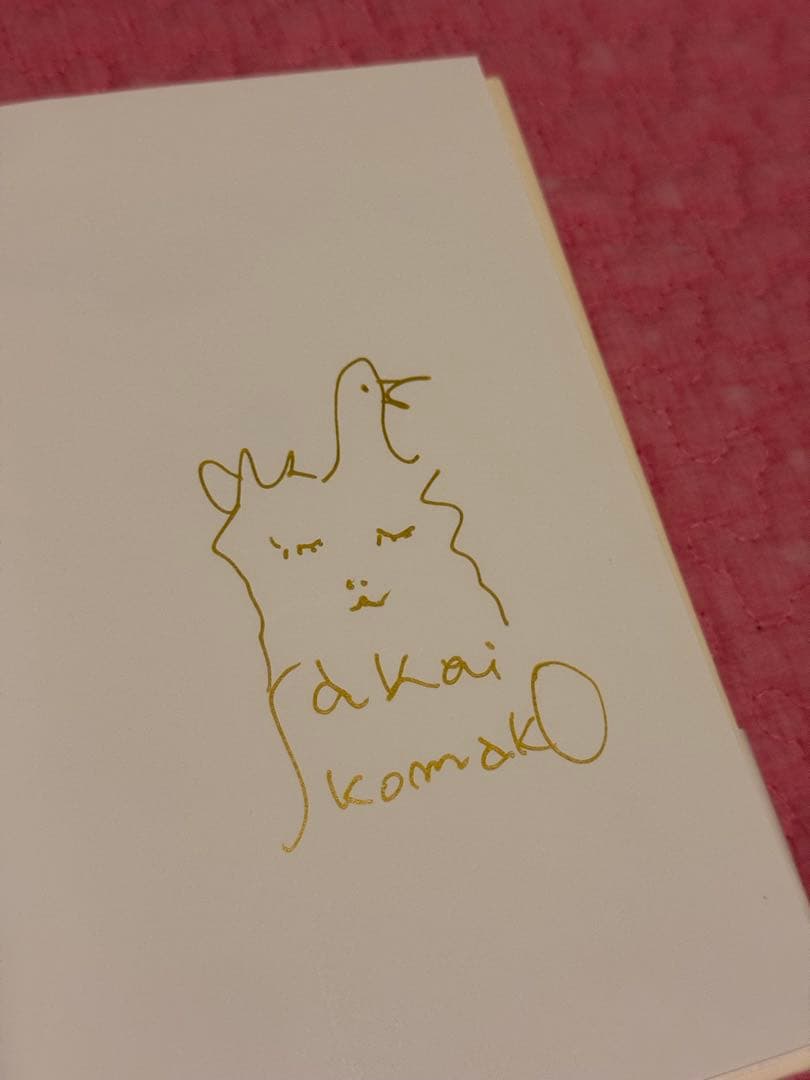 Sakai
komako